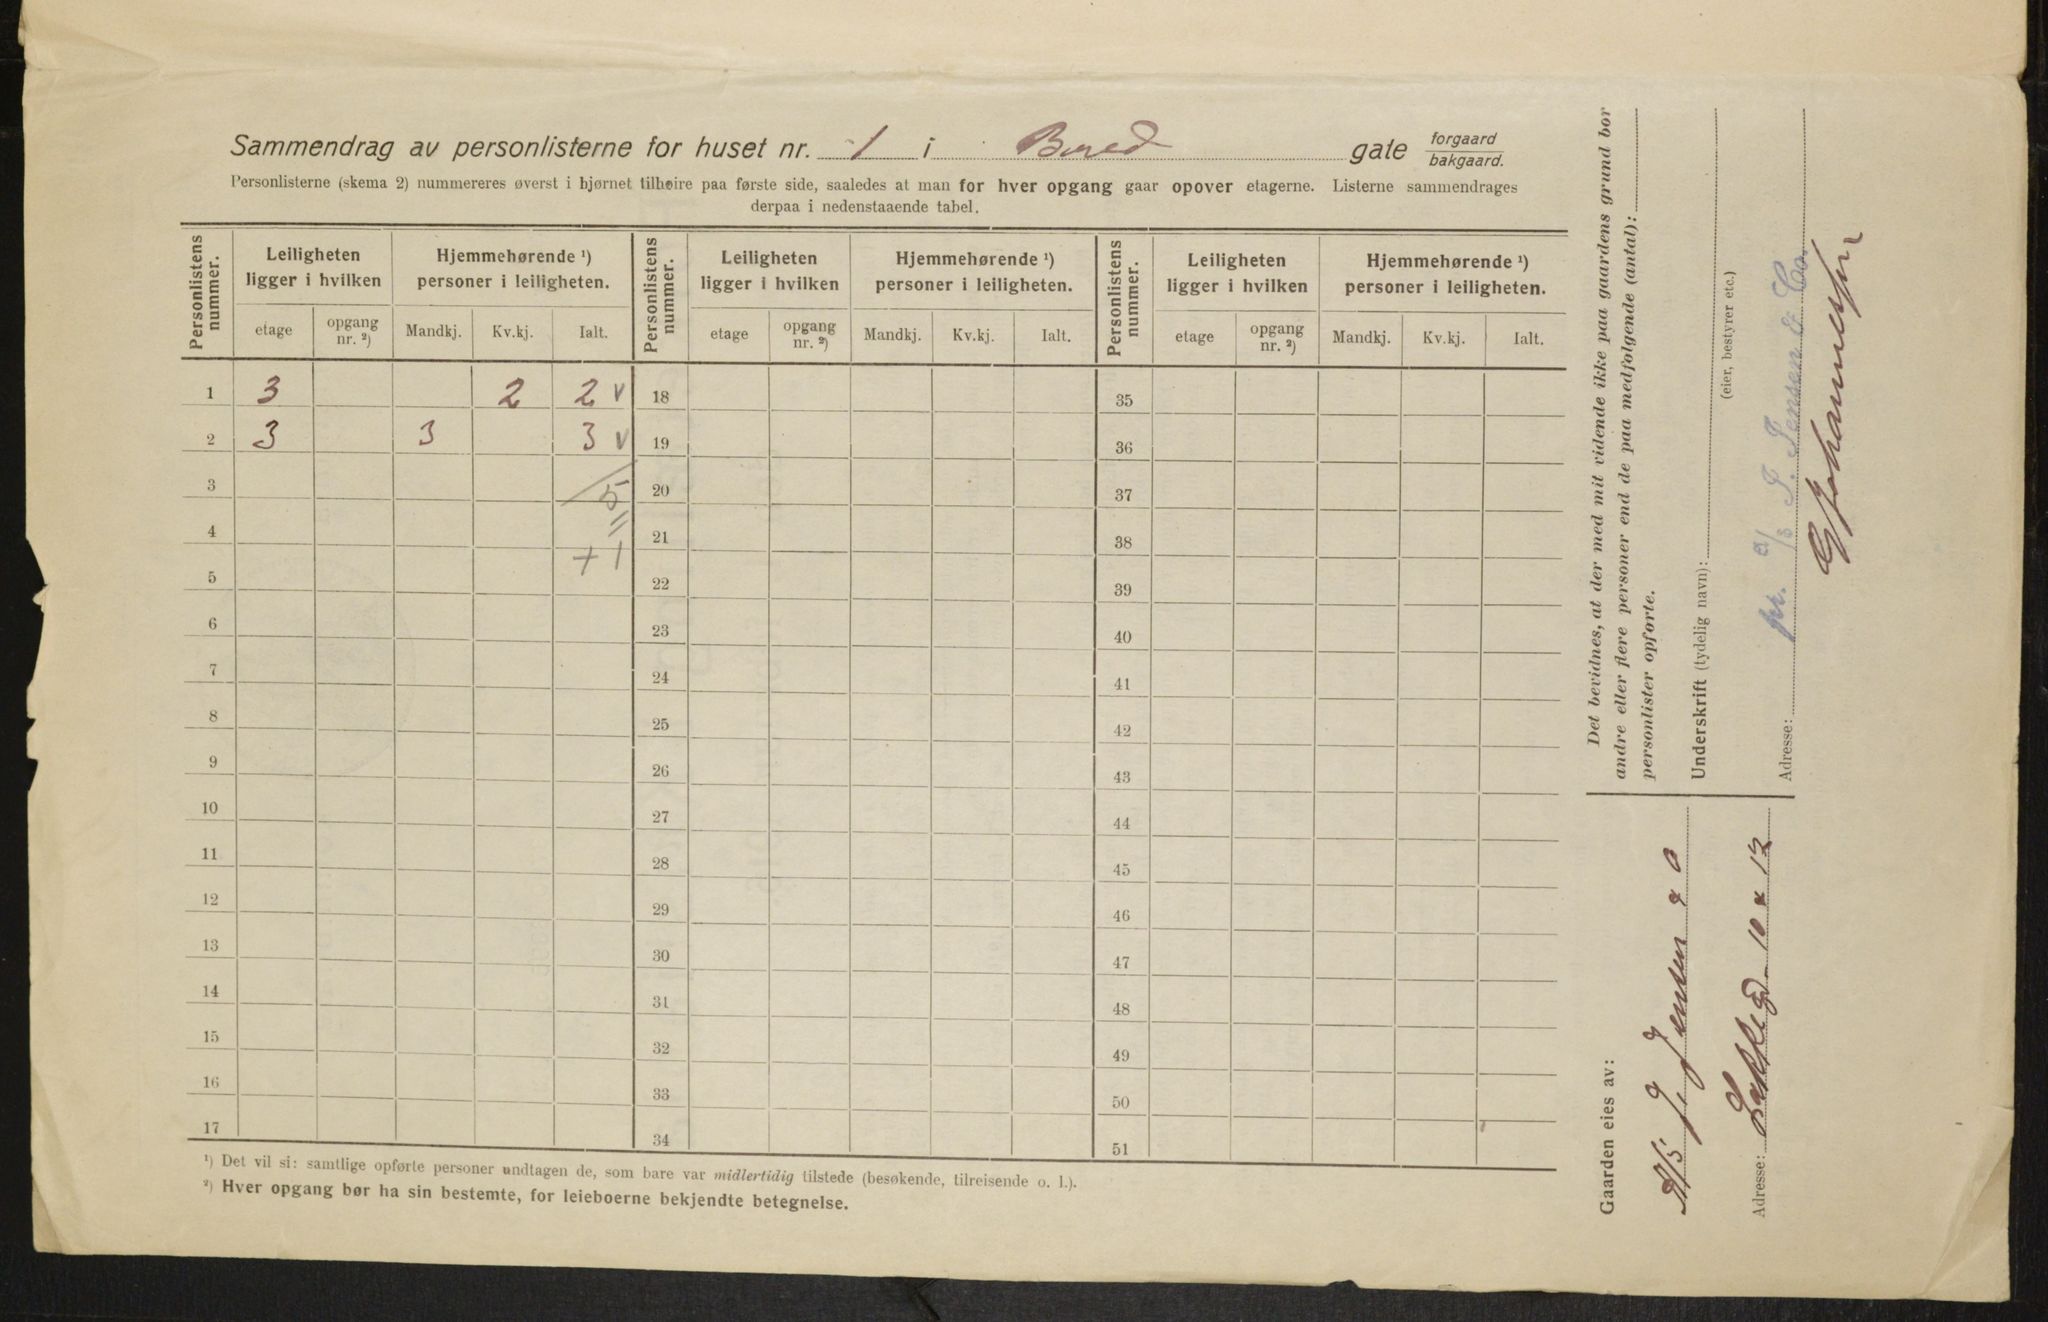 Sammendrag av personlisterne for huset nr. 1 i gate forgaard bakgaard.
Personlisterne (skema 2) nummereres øverst i hjørnet tilhøire paa første side, saaledes at man for hver opgang gaar opover etagerne. Listerne sammendrages
derpaa i nedenstaaende tabel.
Personlistens nummer. Leiligheten ligger i hvilken Hjemmehørende ¹) personer i leiligheten. Personlistens nummer. Leiligheten ligger i hvilken Hjemmehørende ¹) personer i leiligheten. Personlistens nummer. Leiligheten ligger i hvilken Hjemmehørende ¹) personer i leiligheten.
etage opgang nr. ²) Mandkj. Kv.kj. Ialt. etage opgang nr. ²) Mandkj. Kv.kj. Ialt. etage opgang nr. ²) Mandkj. Kv.kj. Ialt.
1 3 2 2 v 18 35
2 3 3 3 v 19 36
3 5 20 37
4 21 38
+1
5 22 39
6 23 40
7 24 41
8 25 42
9 26 43
10 27 44
11 28 45
12 29 46
13 30 47
14 31 48
15 32 49
16 33 50
17 34 51
¹) Det vil si: samtlige opførte personer undtagen de, som bare var midlertidig tilstede (besøkende, tilreisende o. l.).
²) Hver opgang bør ha sin bestemte, for leieboerne bekjendte betegnelse.
Det bevidnes, at der med mit vidende ikke paa gaardens grund bor
andre eller flere personer end de paa medfolgende (antal):
personlister opforte.
Underskrift (tydelig navn):
(eier, bestyrer etc.)
pr. A/S J. Jensen & Co.
Adresse:
Johannessen
Gaarden eies av:
A/S J. Jensen & Co
Adresse: 10 & 12